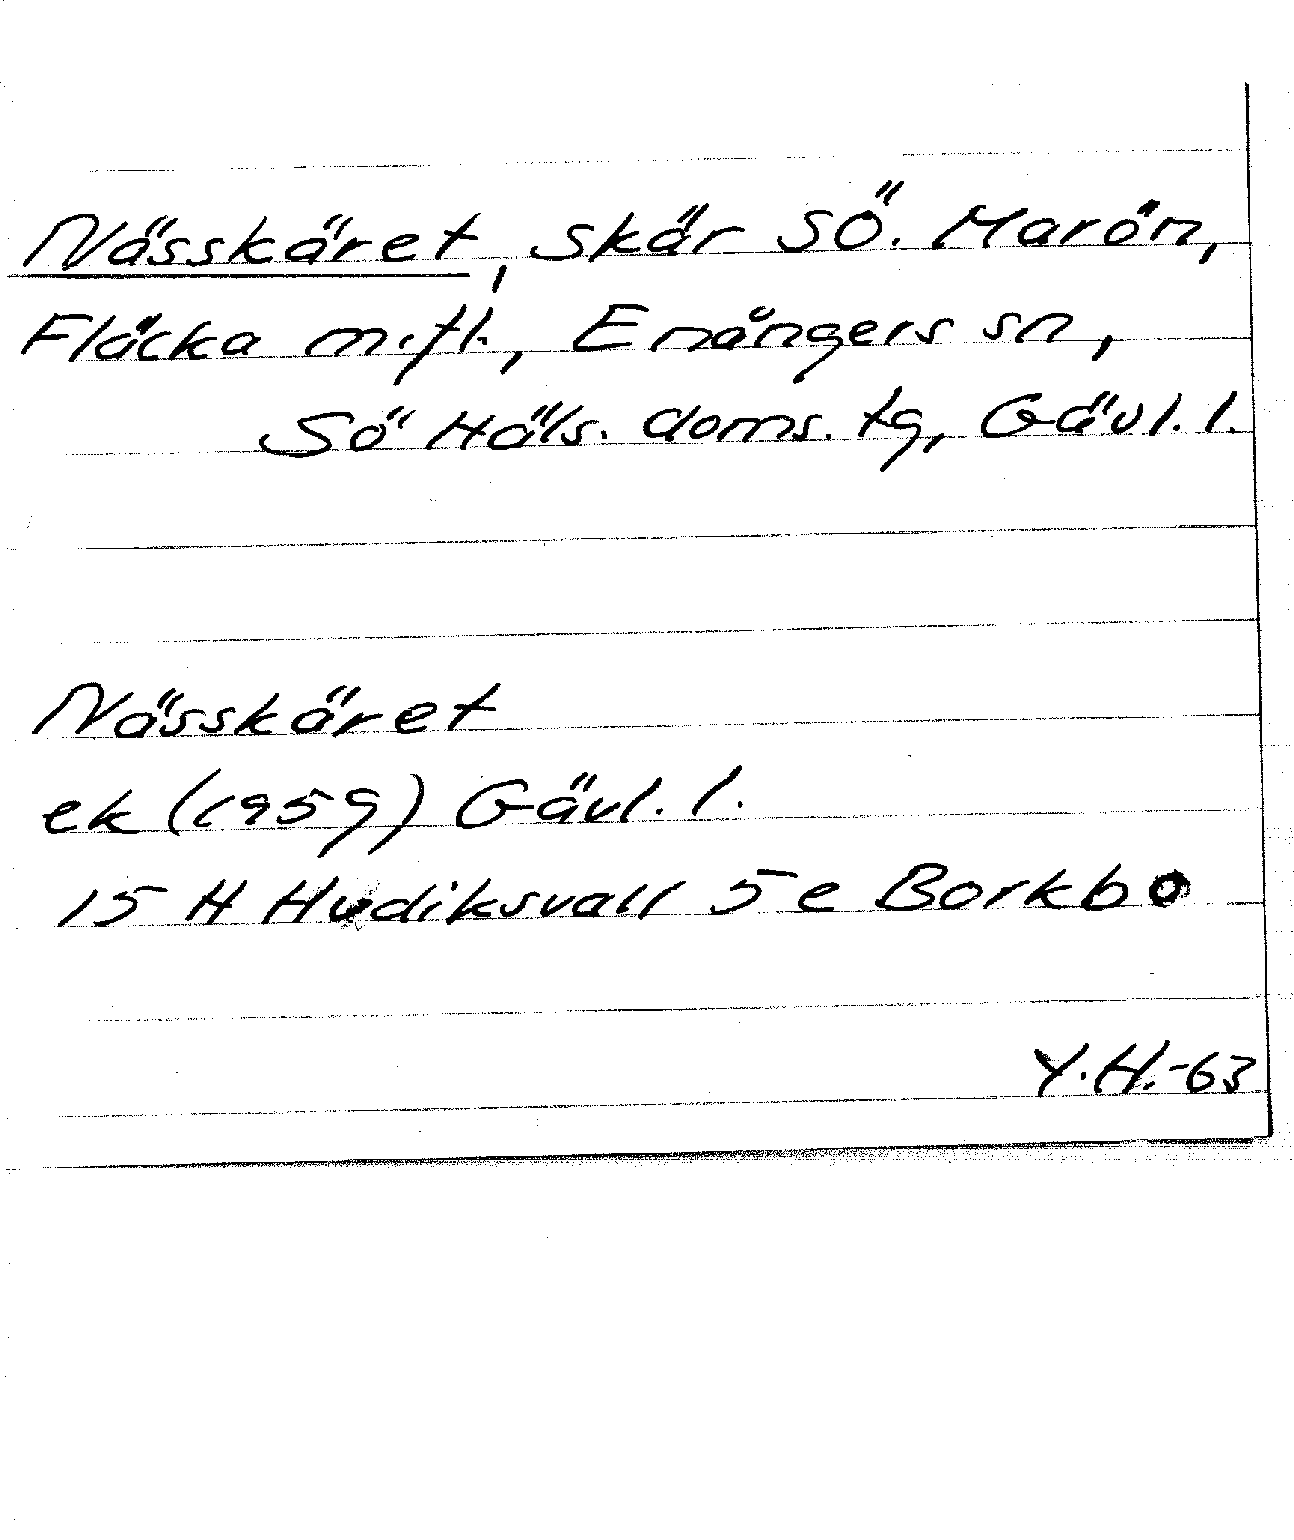 Nässkäret, skär SÖ. Marön,
Fläcka m.fl., Enångers sn,
Sö Häls. doms. tg, Gävl. l.
Nässkäret
ek (1959) Gävl. l.
15 H Hudiksvall 5 e Borkbo
Y.H.-63